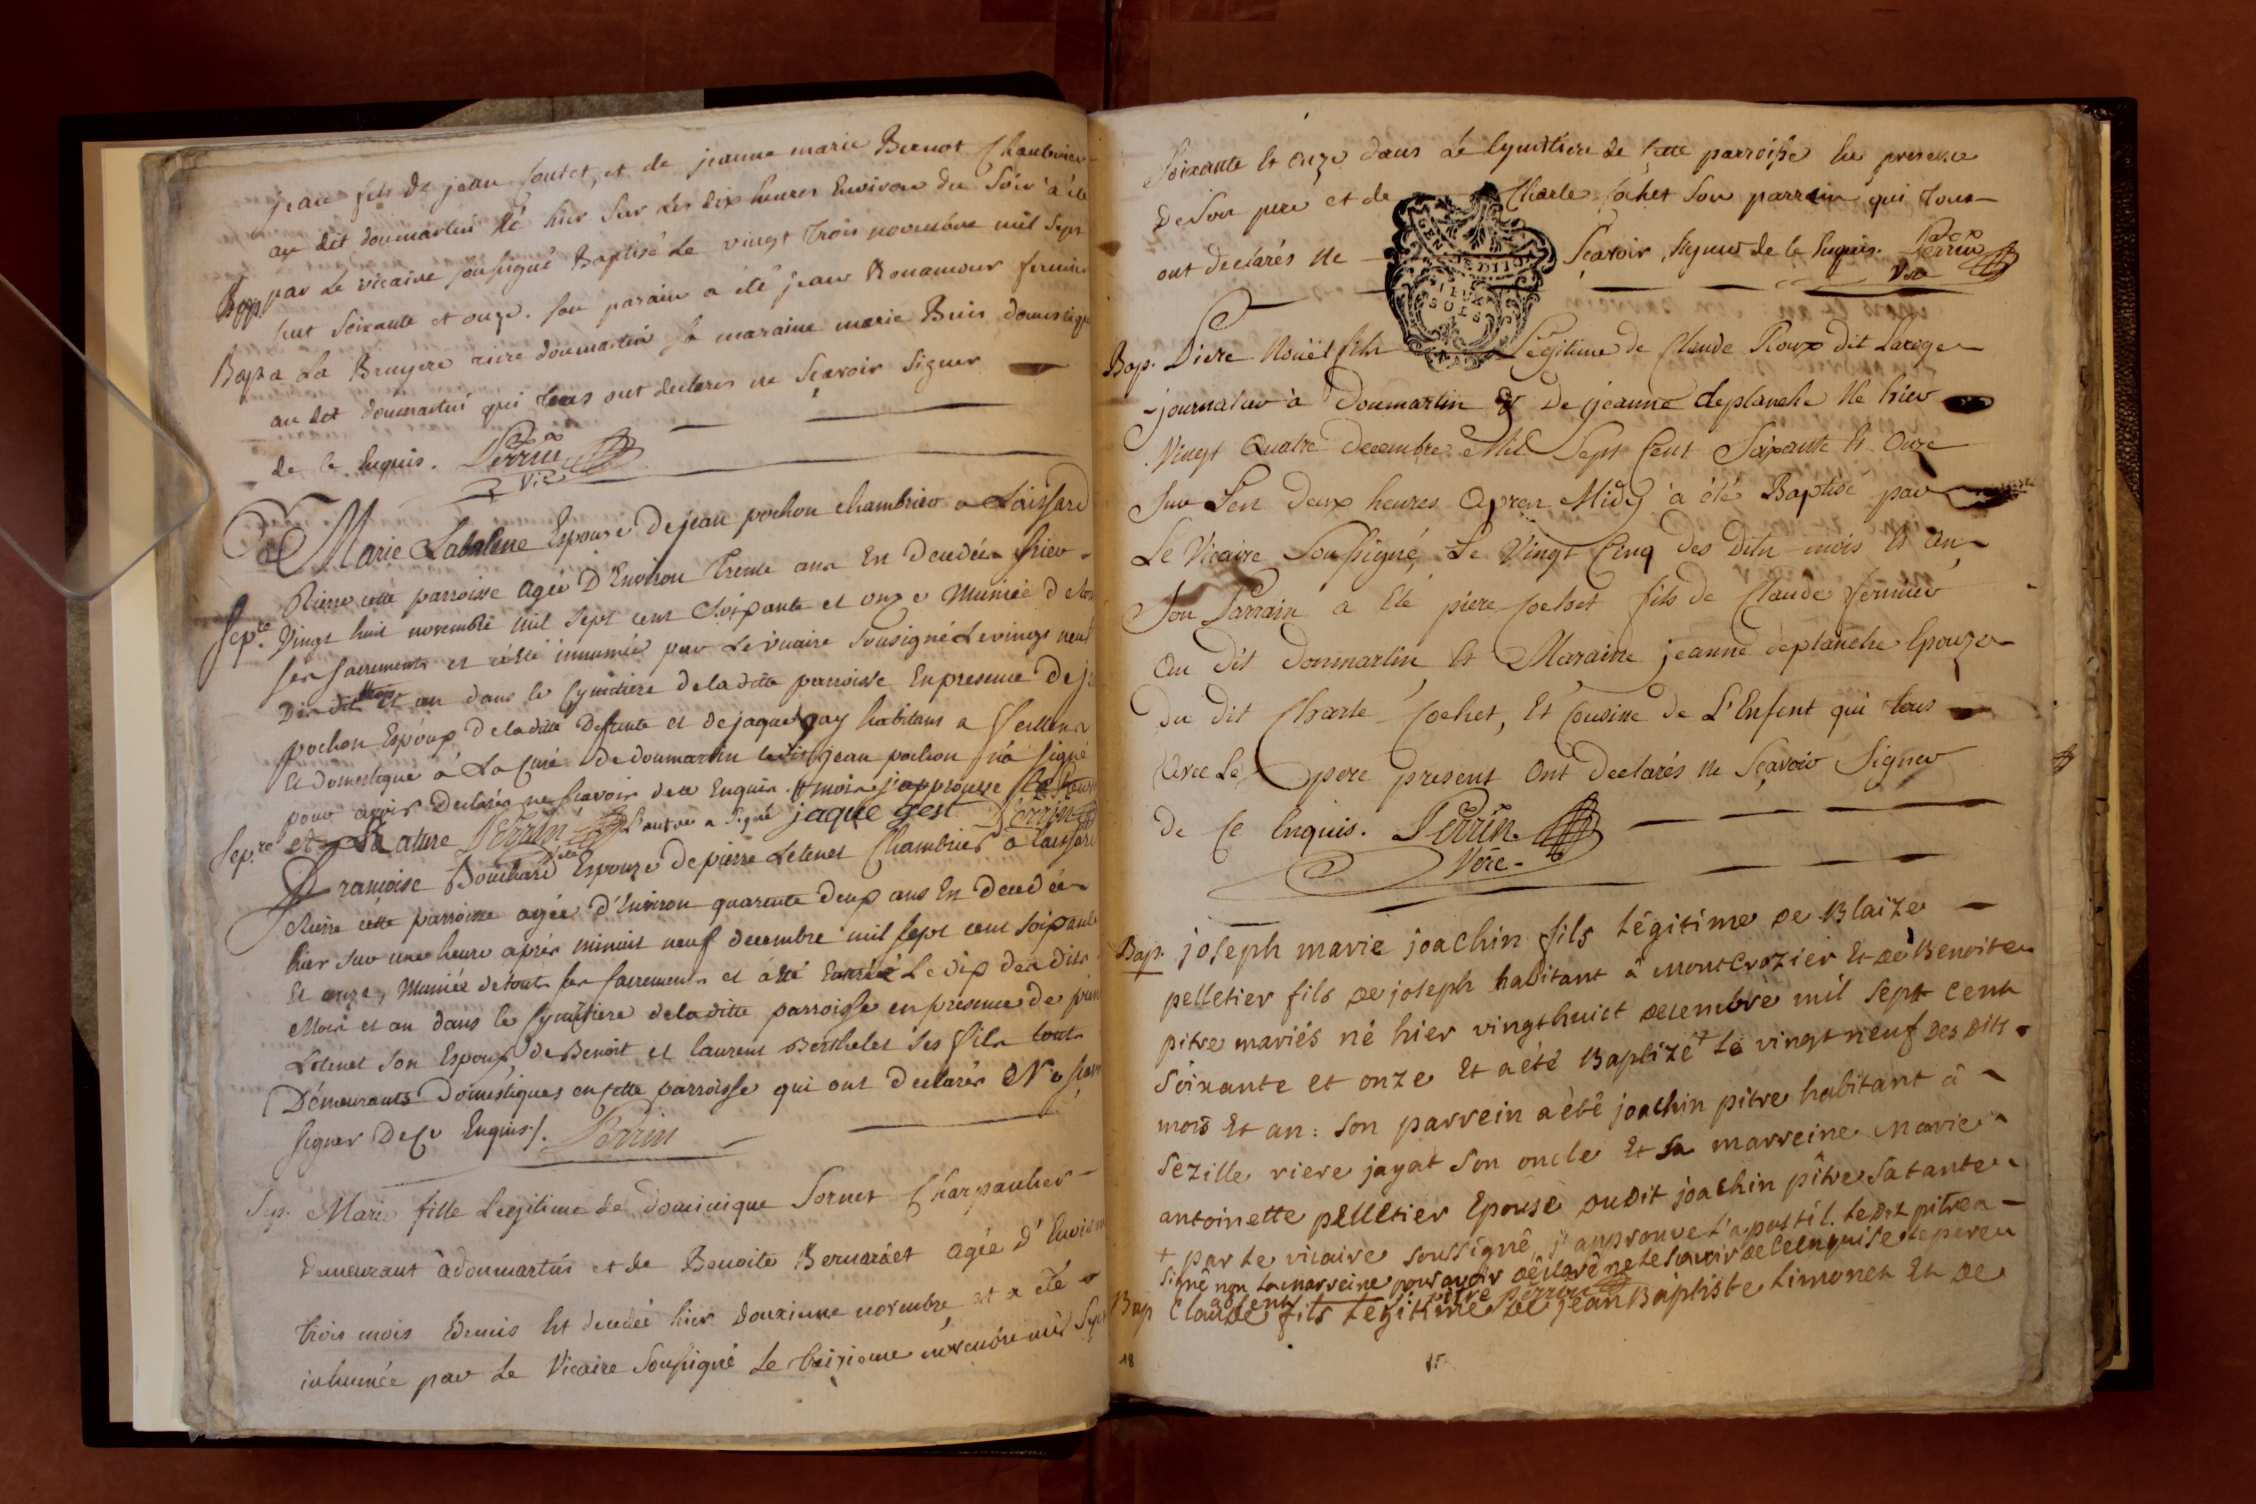 jean fils de jean foutet, et de jeanne marie Buenot Chambrier
au dit doumartin né hier sur les dix heures Environ du Soir a été
Bap. par le vicaire sousigné Baptisé Le vingt trois novembre mil Sept
cent soixante et onze. son parain a été jean Bonamour fermier
Bap. a La Bruyere riere doumartin sa maraine marie Buis domestique
au dit doumartin qui tous ont declarés ne sçavoir signer
de ce Enquis. Perrin
Vic
Marie Labalme Epouse de jean pochon chambrier a Laissard
Riere cette parroisse agée D'Environ trente ans En decedée hier
Sep.re vingt huit novembre mil sept cent soixante et onze Muniée de tous
ses sacrements et a été inhumée par Le vicaire sousigné Le vingt neuf
Des dit mois et an dans le cymitiere de la dite parroisse En presence De
pochon Epoux de la dite defunte et de jaque gay habitans a
Et domestique a La Cure de doumartin ledit jean pochon n'a signé
pour avoir declaré ne scavoir de ce Enquis mois j'approuve
et Rature Perrin L'autre a signé jaque gest Perrin
Sep.re Françoise Bouchard Epouze de pierre Letenet Chambrier a laissard
Riere cette parroisse agée d'Environ quarente deux ans En decedée
hier sur une heure après minuit neuf decembre mil sept cent soixante
Et onze, Muniée de touts ses sacrements et a été Enterrée Le dix des dits
Mois et an dans le Cymitiere de la dite parroisse en presence de
Letenet son Epoux, de Benoit et laurent Berthelet ses fils touts
Démeurants Domestiques en cette parroisse qui ont declarés Ne
signer De ce Enquis. Perrin
Sep. Marie fille Legitime de dominique Sornet Charpantier
Demeurant à doumartin et de Benoite Bernardet agée d'Environ
trois mois Demis Est decedée hier douzieme novembre et a été
inhumée par Le Vicaire Sousigné Le treizieme novembre mil Sept
soixante Et onze dans Le Cymitiere de Cette parroisse En presence
De son pere et de Charle Cochet son parrain qui tous
ont declarés Ne Sçavoir signer de Ce Enquis. Perrin
Vre
GEN EDITION
SOLS
Bap. Piere Noüel fils Légitime de Claude Roux dit Larege
journalier à Doumartin & De jeanne deplanche Né hier
Vingt Quatre Decembre Mil Sept Cent Soixante Et Onze
Sur Les Deux heures Apres Midy a été Baptisé par
Le Vicaire Sousigné Le Vingt Cinq des Dits mois Et An
Son Parrain a Eté piere Cochet fils de Claude fermier
au dit doumartin Et Maraine jeanne deplanche Epouze
Du dit Charle Cochet, Et Cousine de L'Enfent qui tous
Avec Le pere present Ont declarés Ne Sçavoir Signer
De Ce Enquis. Perrin
Vere
Bap. joseph marie joachin fils Légitime de Blaize
pelletier fils de joseph habitant â montcrozier Et de Benoite
pitre mariés né hier vingthuict decembre mil sept cent
soixante et onze Et a été Baptizé + Le vingt neuf des dits
mois Et an : son parrein a été joachin pitre habitant â
sezille riere jayat son oncle Et sa marreine marie
antoinette pelletier Epouse dudit joachin pitre sa tante
+ par Le vicaire soussigné j'approuve L'apostil. Le dit pitre a
signé non La marreine pour avoir déclaré ne Le savoir de ce enquise Le pere
absent pitre Perrin
Bap Claude fils Légitime de jean Baptiste Limonet Et de
18
15